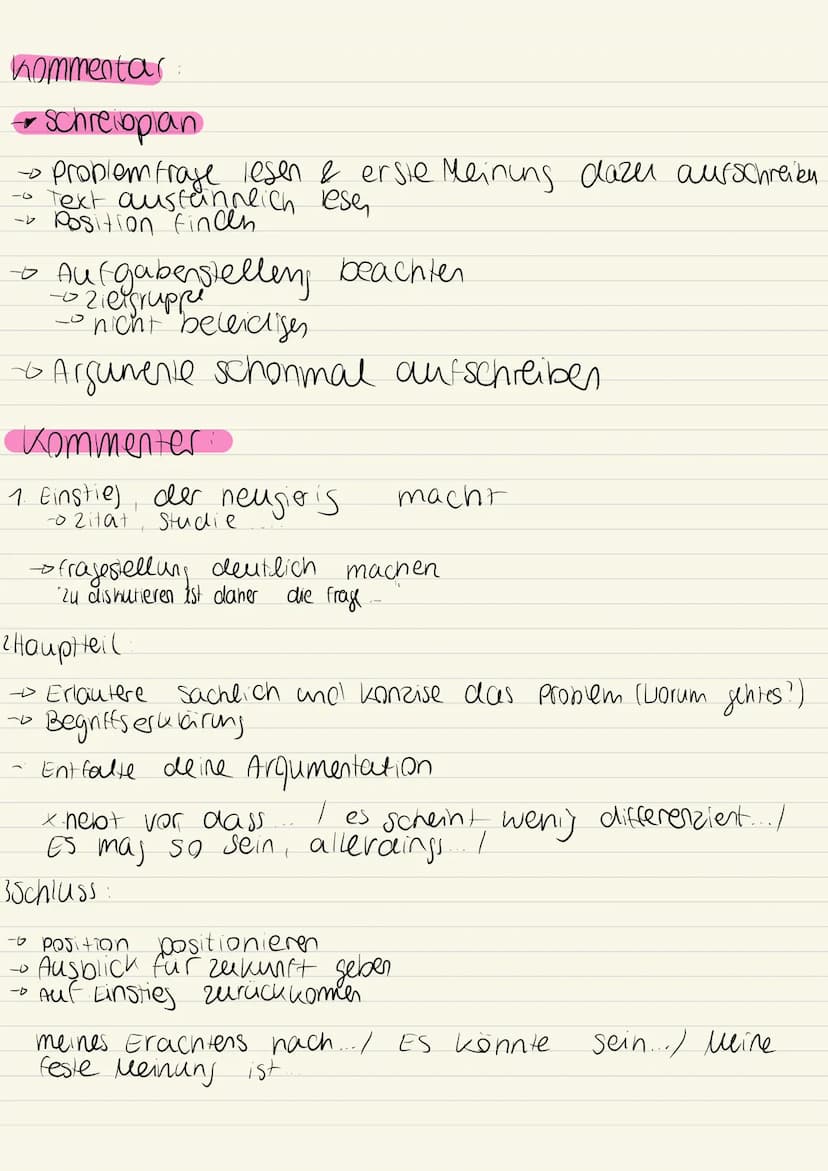 Kommentar:
Schreibplan
→ Problemfrage lesen & erste Meinung dazu aufschreiben
→ Text ausführlich lesen
→ Position finden
→ Aufgabenstellung beachten
→ Zielgruppe
→ nicht beleidigen
→ Argumente schonmal aufschreiben
Kommentar:
1. Einstieg, der neugierig macht
→ Zitat, Studie...
→ Fragestellung deutlich machen
"Zu diskutieren ist daher die Frage..."
2 Hauptteil:
→ Erläutere sachlich und konzise das Problem (Worum geht es?)
→ Begriffserklärung
- Entfalte deine Argumentation
x hebt vor dass... / es scheint wenig differenziert.../
Es mag so sein, allerdings... /
3 Schluss:
→ Position positionieren
→ Ausblick für Zukunft geben
→ Auf Einstieg zurückkommen
meines Erachtens nach.../ Es könnte sein.../ Meine
feste Meinung ist...